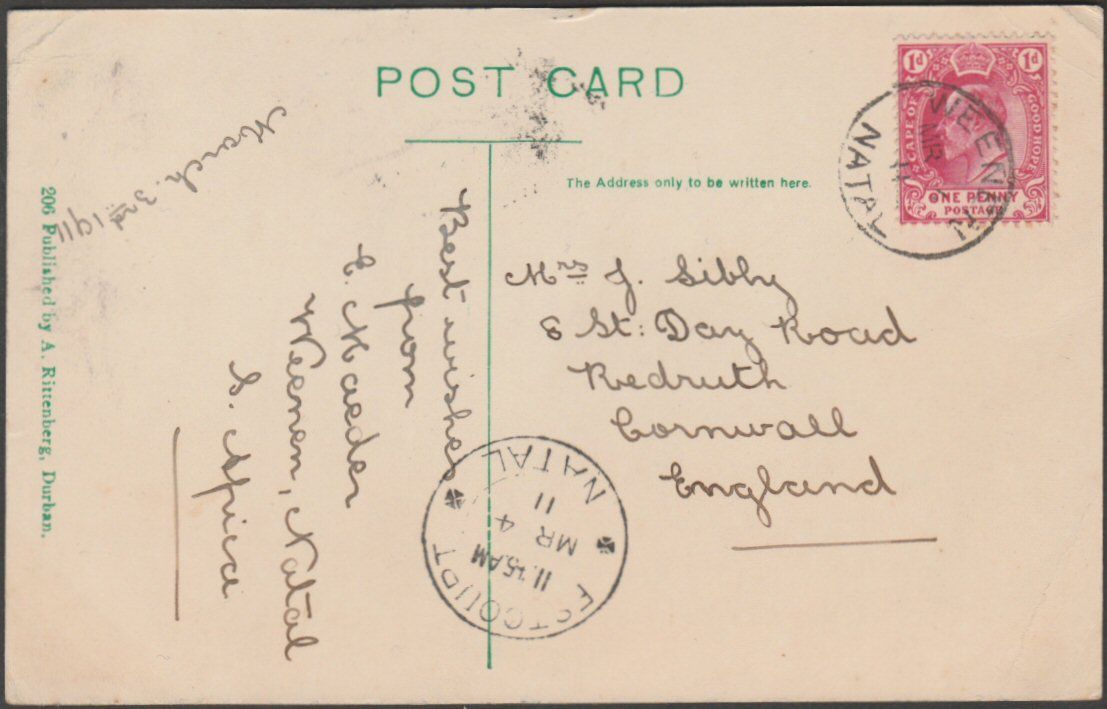 POST CARD
The Address only to be written here.
206 Published by A. Rittenberg, Durban.
March 3rd 1911
Best wishes
from
E. Maeder
Weenen, Natal
S. Africa
Mrs J. Sibby
8 St: Day Road
Redruth
Cornwall
England
1d 1d
CAPE OF GOOD HOPE
ONE PENNY
POSTAGE
WEENEN
MR
11
NATAL
ESTCOURT
11.15 AM
MR 4
11
NATAL